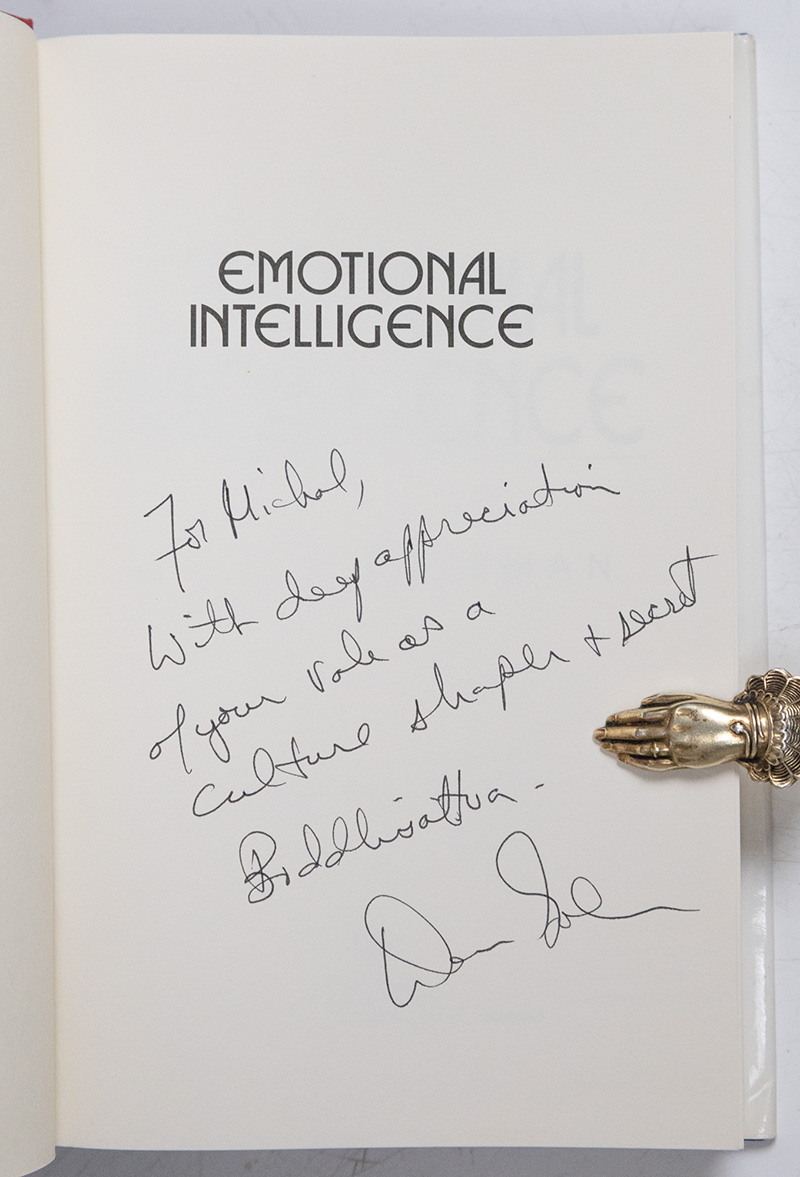 EMOTIONAL
INTELLIGENCE
For Michal,
With deep appreciation
of your role as a
culture shaper + secret
Boddhisattva -
Dan Gol